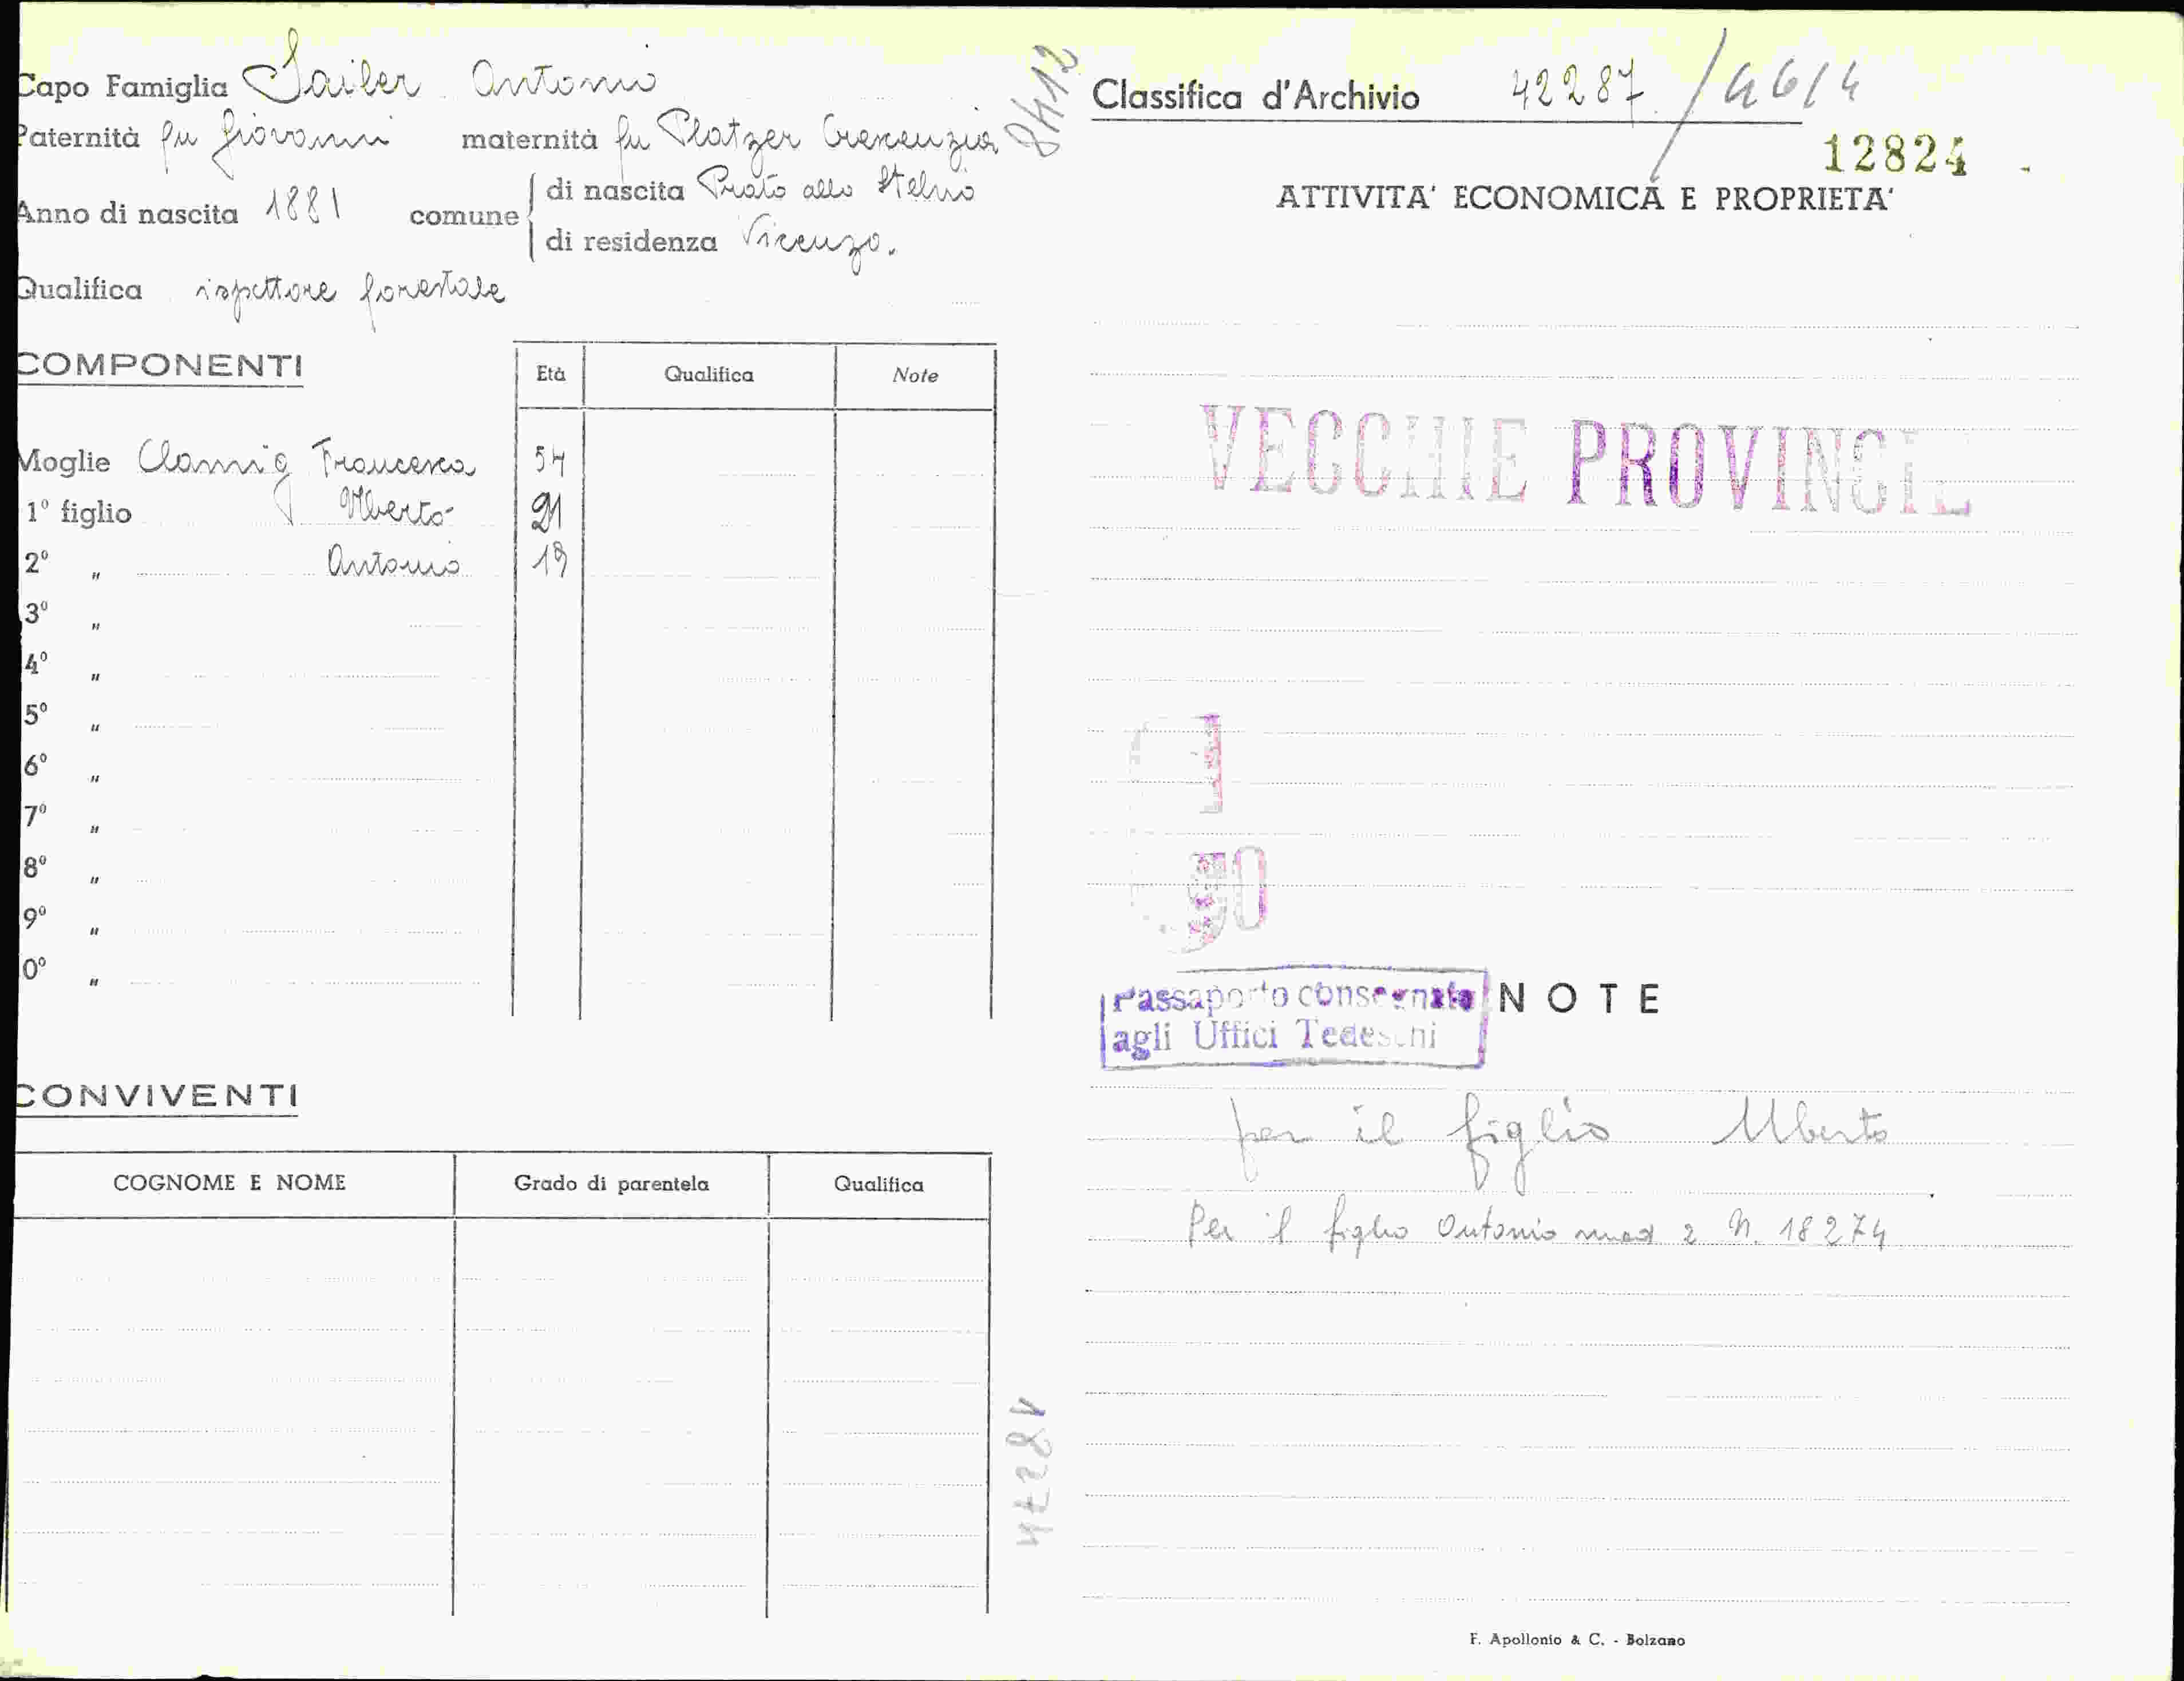 Capo Famiglia Sailer Antonio
Paternità fu Giovanni maternità fu Platzer Crescenzia
Anno di nascita 1881 comune
di nascita Prato allo Stelvio
di residenza Vicenza.
Qualifica ispettore forestale
COMPONENTI
Età Qualifica Note
Moglie Clamig Francesca 54
1° figlio Alberto 21
2° " Antonio 19
3° "
4° "
5° "
6° "
7° "
8° "
9° "
0° "
CONVIVENTI
COGNOME E NOME Grado di parentela Qualifica
8412
18274
Classifica d'Archivio 42287 /46/4
12824
ATTIVITA' ECONOMICA E PROPRIETA'
VECCHIE PROVINCIE
Passaporto consegnato
agli Uffici Tedeschi
NOTE
per il figlio Alberto
Per il figlio Antonio mod 2 N. 18274
F. Apollonio & C. - Bolzano